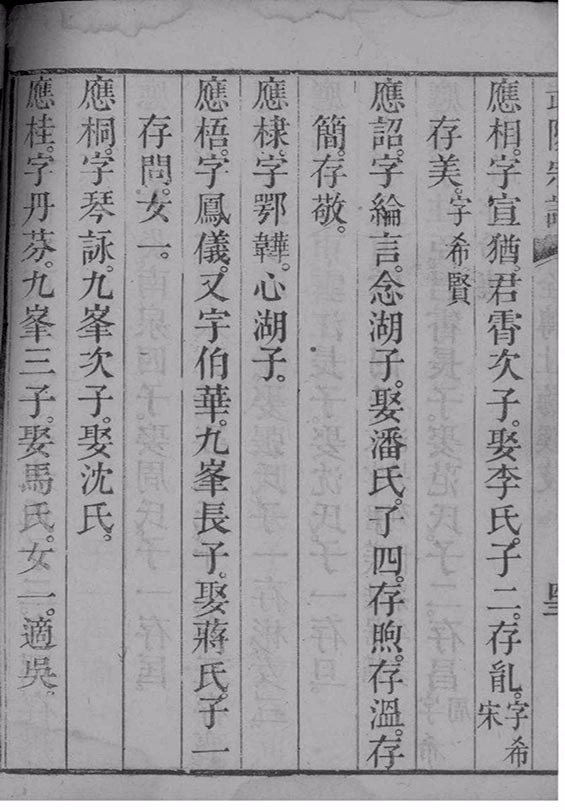 應相。字宣猶。君霄次子。娶李氏。子二。存胤。字希宋
存美。字希賢
應詔。字綸言。念湖子。娶潘氏。子四。存煦。存溫。存
簡。存敬。
應棣。字鄂韡。心湖子。
應梧。字鳳儀。又字伯華。九峯長子。娶蔣氏。子一
存問。女一。
應桐。字琴詠。九峯次子。娶沈氏。
應桂。字丹芬。九峯三子。娶馬氏。女一。適吳。